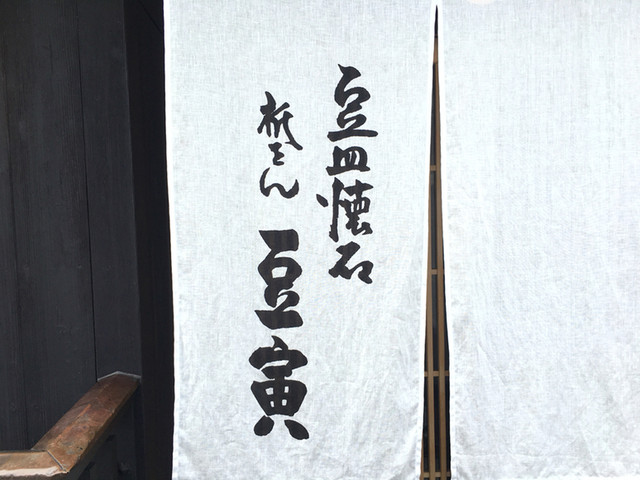 豆皿懐石
祇をん 豆寅